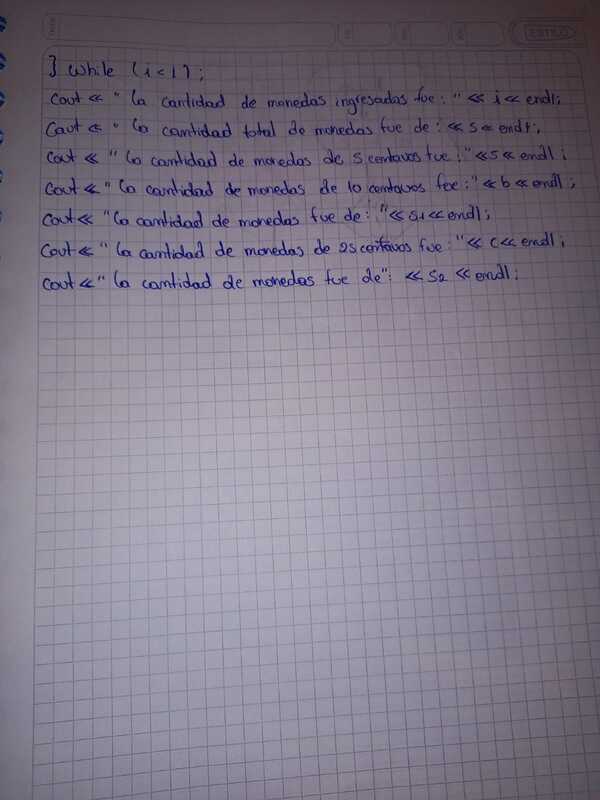 ESTILO
} while (i<1);
Cout << " la cantidad de monedas ingresadas fue: " << i << endl;
Cout << " la cantidad total de monedas fue de : << s << endl;
Cout << " la cantidad de monedas de 5 centavos fue : " << s << endl ;
Cout << " la cantidad de monedas de 10 centavos foe : " << b << endl ;
Cout << " la cantidad de monedas fue de : " << s1 << endl ;
Cout << " la cantidad de monedas de 25 centavos fue : " << c << endl ;
Cout << " la cantidad de monedas fue de": << s2 << endl ;